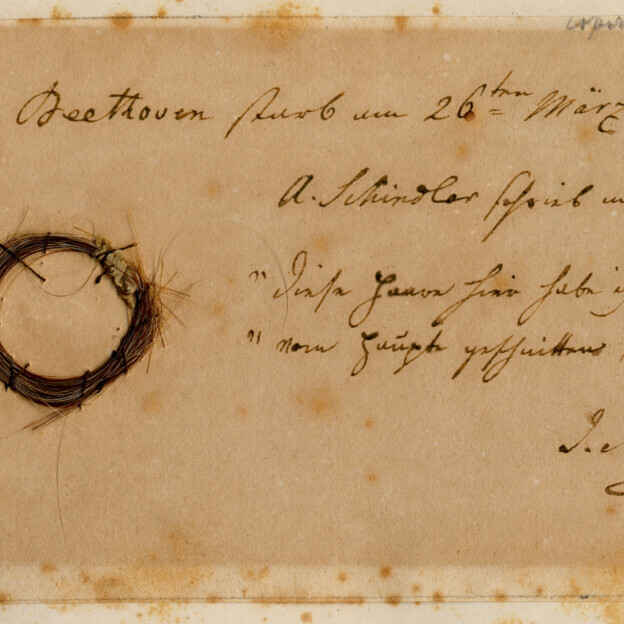 Beethoven starb am 26ten März
A. Schindler schrieb
"Diese Haare hier habe
" vom Haupte geschnitten